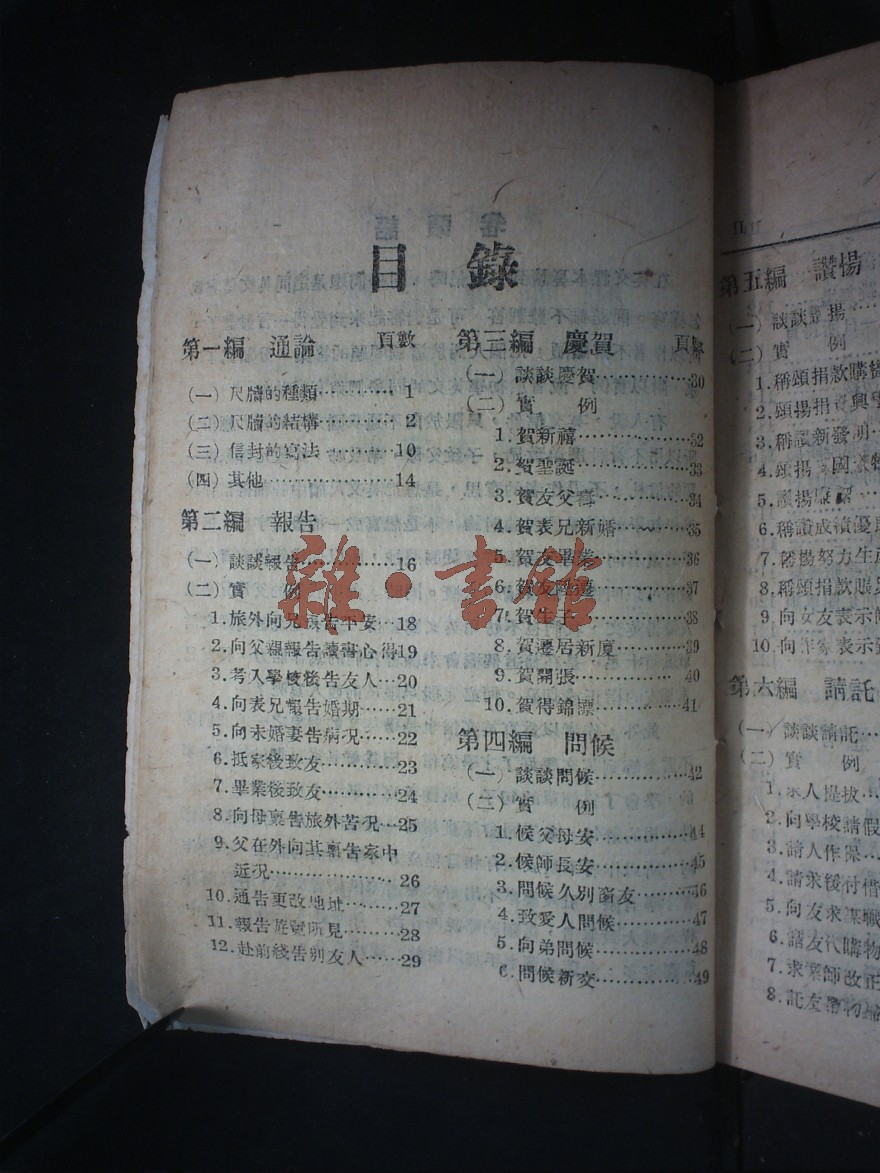 目錄
第一編 通論 頁數
(一) 尺牘的種類…………1
(二) 尺牘的結構…………2
(三) 信封的寫法…………10
(四) 其他…………14
第二編 報告
(一) 談談報告…………16
(二) 實 例
1.旅外向兄報告平安…18
2.向父親報告讀書心得19
3.考入學校後告友人…20
4.向表兄報告婚期……21
5.向未婚妻告病況……22
6.抵家後致友…………23
7.畢業後致友…………24
8.向母稟告旅外苦況…25
9.父在外向其稟告家中
近況…………26
10.通告更改地址………27
11.報告旅途所見………28
12.赴前綫告别友人……29
第三編 慶賀
(一) 談談慶賀…………30
(二) 實 例
1.賀新禧…………32
2.賀聖誕…………33
3.賀友父壽…………34
4.賀表兄新婚…………35
5.賀友畢業…………36
6.賀友陞遷…………37
7.賀生子…………38
8.賀遷居新廈…………39
9.賀開張…………40
10.賀得錦標…………41
第四編 問候
(一) 談談問候…………42
(二) 實 例
1.候父母安…………44
2.候師長安…………45
3.問候久别窗友………46
4.致愛人問候…………47
5.向弟問候…………48
6.問候新交…………49
第五編 讚揚
(二) 實 例
1.稱頌捐款購
3.稱讚新發明
6.稱讚成績優良
7.獎揚努力生產
9.向女友表示
10.向作家表示
第六編 請託
(一) 談談請託…
(二) 實 例
1.求人提拔…
2.向學校請假
3.請人作保…
4.請求後付借
5.向友求謀職
6.請友代購物
7.求業師改正
8.託友帶物
雜·書館